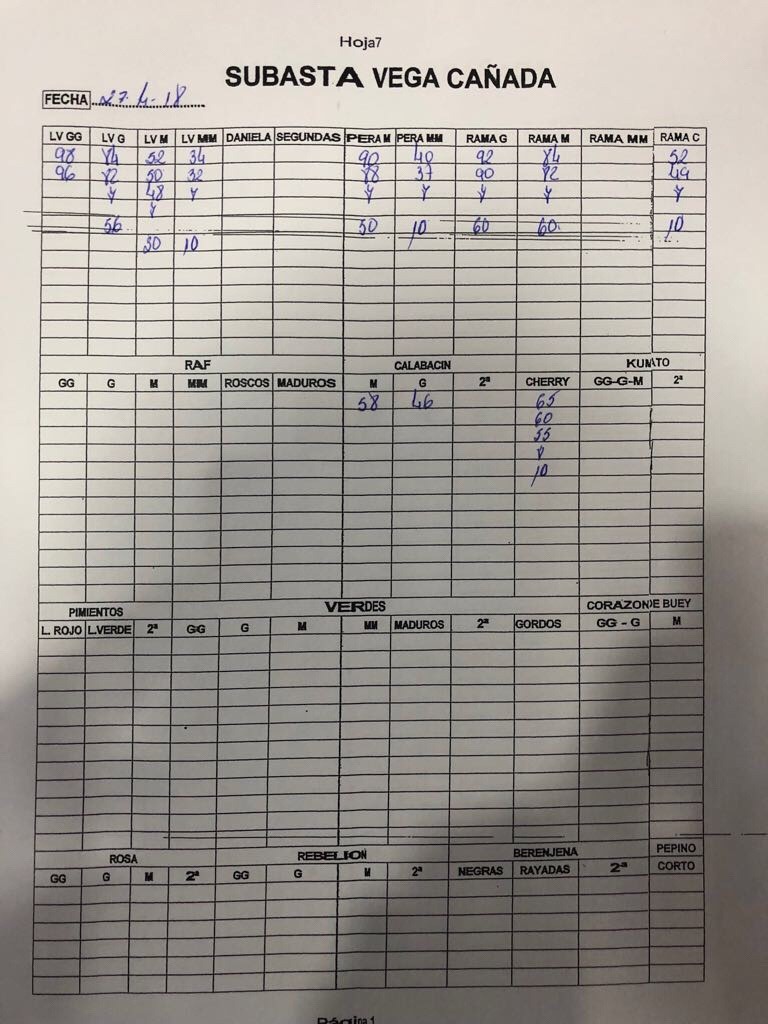 Hoja7
SUBASTA VEGA CAÑADA
FECHA 27-4-18
LV GG LV G LV M LV MM DANIELA SEGUNDAS PERA M PERA MM RAMA G RAMA M RAMA MM RAMA C
98 84 52 34 90 40 92 84 52
96 82 50 32 88 37 90 82 49
Y 48 Y Y Y Y Y Y
Y
56 50 10 60 60 10
30 10
RAF CALABACIN KUMATO
GG G M MM ROSCOS MADUROS M G 2ª CHERRY GG-G-M 2ª
58 46 65
60
55
Y
10
PIMIENTOS VERDES CORAZON DE BUEY
L. ROJO L.VERDE 2ª GG G M MM MADUROS 2ª GORDOS GG - G M
ROSA REBELION BERENJENA PEPINO
GG G M 2ª GG G M 2ª NEGRAS RAYADAS 2ª CORTO
Página 1